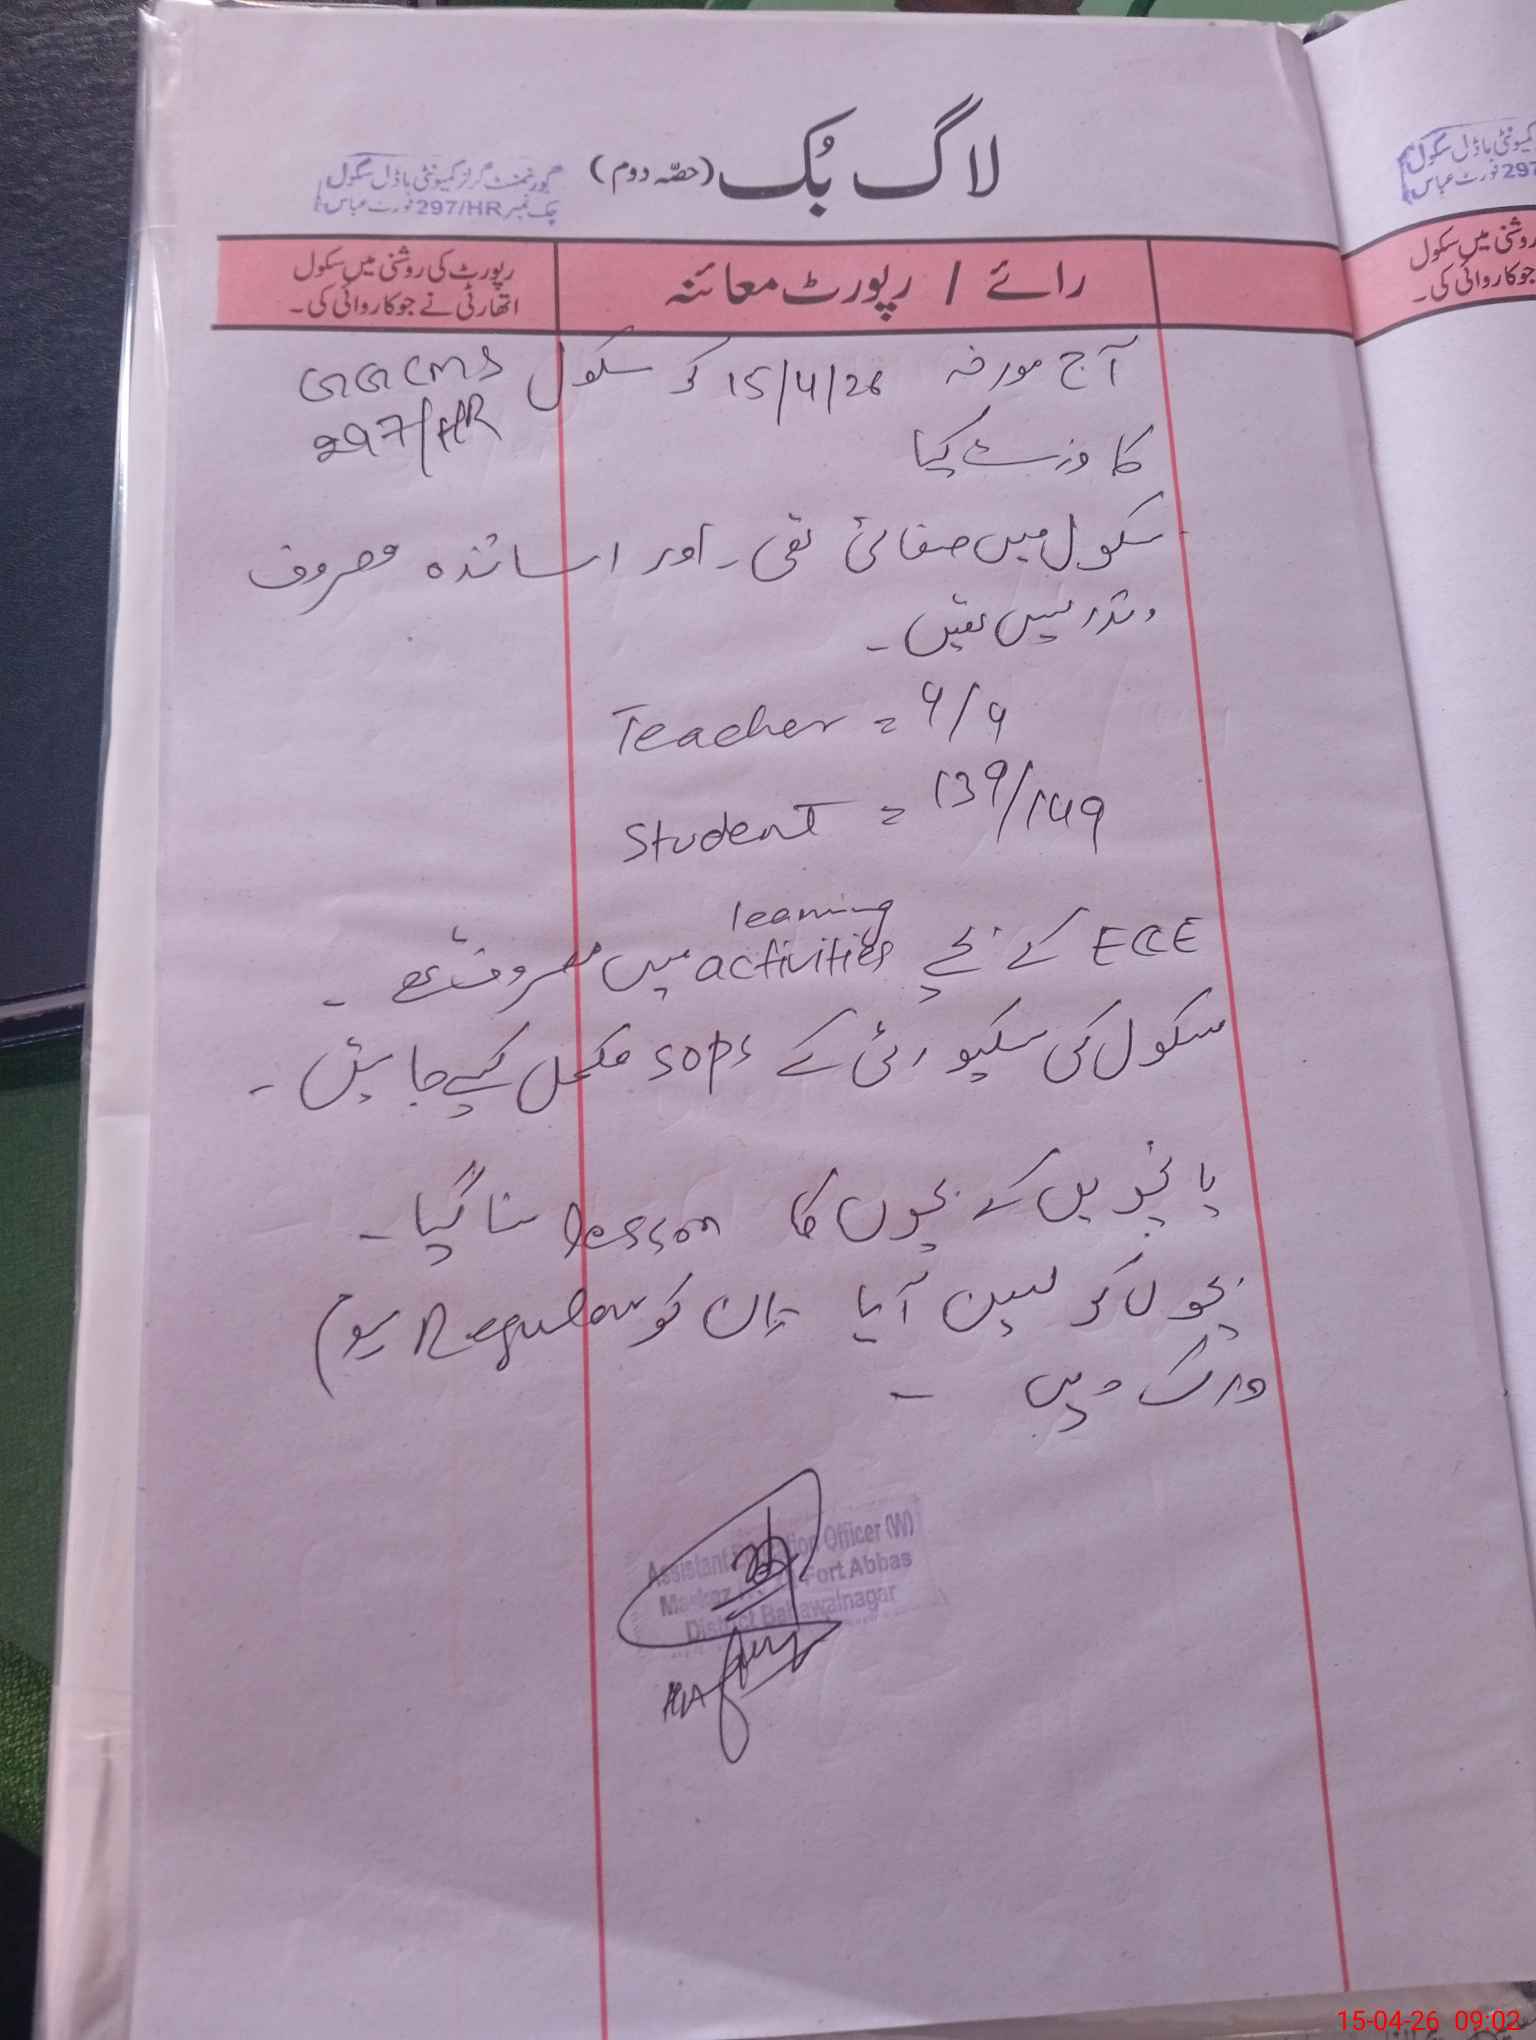 لاگ بُک (حصّہ دوم)
گورنمنٹ گرلز کمیونٹی ماڈل سکول
چک نمبر 297/HR فورٹ عباس
رائے / رپورٹ معائنہ
رپورٹ کی روشنی میں سکول
اتھارٹی نے جو کاروائی کی۔
آج مورخہ 15/4/26 کو سکول GGCMS
297/HR
کا وزٹ کیا
سکول میں صفائی تھی۔ اور اساتذہ مصروف
تدریس تھیں۔
Teacher = 9/9
Student = 139/149
learning
ECE کے بچے activities میں مصروف تھے۔
سکول کی سکیورٹی کے SOPs مکمل کیے جائیں۔
پانچویں کے بچوں کا lesson سنا گیا۔
بچوں کو سبق آیا ان کو Regular ہوم
ورک دیں۔
Assistant Education Officer (W)
Markaz Fort Abbas
District Bahawalnagar
کمیونٹی ماڈل سکول
297 فورٹ عباس
روشنی میں سکول
جو کاروائی کی۔
15-04-26 09:02